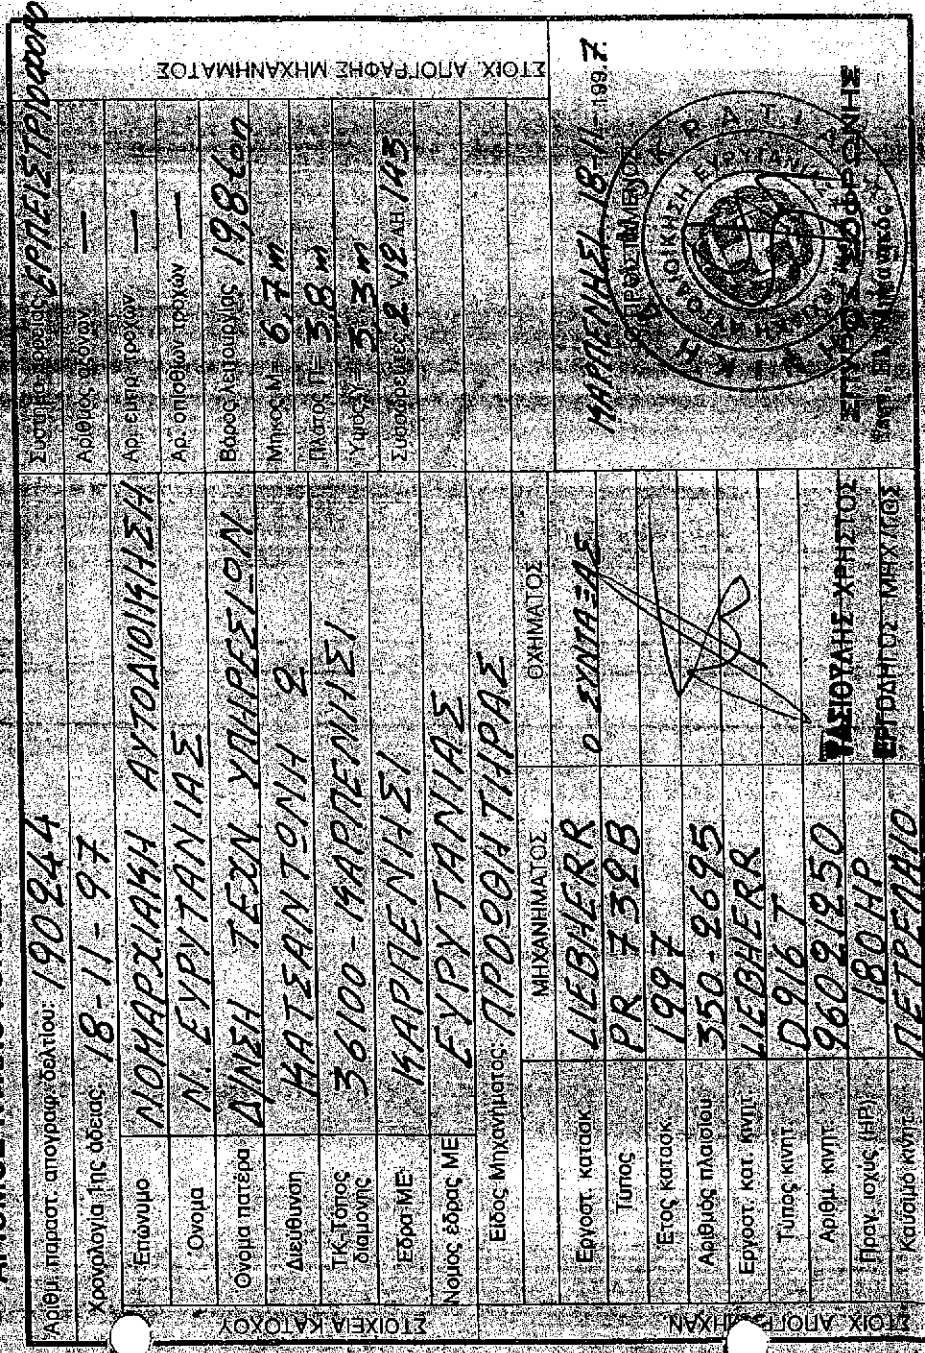 Αριθμ. παραστ. απογραφ. δελτίου: 190244
Χρονολογία 1ης άδειας: 18-11-97
ΣΤΟΙΧΕΙΑ ΚΑΤΟΧΟΥ
Επώνυμο ΝΟΜΑΡΧΙΑΚΗ ΑΥΤΟΔΙΟΙΚΗΣΗ
Όνομα Ν. ΕΥΡΥΤΑΝΙΑΣ
Όνομα πατέρα Δ/ΝΣΗ ΤΕΧΝ. ΥΠΗΡΕΣΙΩΝ
Διεύθυνση ΚΑΤΣΑΝΤΩΝΗ 2
ΤΚ-Τόπος διαμονής 36100-ΚΑΡΠΕΝΗΣΙ
Εδρα ΜΕ ΚΑΡΠΕΝΗΣΙ
Νομός έδρας ΜΕ ΕΥΡΥΤΑΝΙΑΣ
Είδος Μηχανήματος: ΠΡΟΩΘΗΤΗΡΑΣ
ΣΤΟΙΧ. ΑΠΟΓΡ ΜΗΧΑΝ
ΜΗΧΑΝΗΜΑΤΟΣ ΟΧΗΜΑΤΟΣ
Εργοστ. κατασκ. LIEBHERR
Τύπος PR-732B
Ετος κατασκ. 1997
Αριθμός πλαισίου 350-2695
Εργοστ. κατ. κινητ. LIEBHERR
Τύπος κινητ. D 916 T
Αριθμ. κινητ. 96021250
Πραγ. ισχύς (HP) 180 HP
Καύσιμο κινητ. ΠΕΤΡΕΛΑΙΟ
Ο ΣΥΝΤΑΞΑΣ
ΤΑΣΙΟΥΛΗΣ ΧΡΗΣΤΟΣ
ΕΡΓΟΔΗΓΟΣ ΜΗΧ/ΓΟΣ
ΣΤΟΙΧ. ΑΠΟΓΡΑΦΗΣ ΜΗΧΑΝΗΜΑΤΟΣ
Σύστημα πορείας ΕΡΠΕΙΣΤΡΙΟΦΟΡΟ
Αριθμός αξόνων —
Αρ. εμπρ. τροχών —
Αρ. οπίσθιων τροχών —
Βάρος λειτουργίας 19,8 ton
Μήκος Μ= 6,7 m
Πλάτος Π= 3,8 m
Ύψος Υ= 3,3 m
Συσσωρευτές 2 V 12 AH 143
ΚΑΡΠΕΝΗΣΙ 18-11-1997
Ο ΠΡΟΪΣΤΑΜΕΝΟΣ
ΕΛΛΗΝΙΚΗ ΔΗΜΟΚΡΑΤΙΑ
ΝΟΜΑΡΧΙΑΚΗ ΑΥΤΟΔΙΟΙΚΗΣΗ ΕΥΡΥΤΑΝΙΑΣ